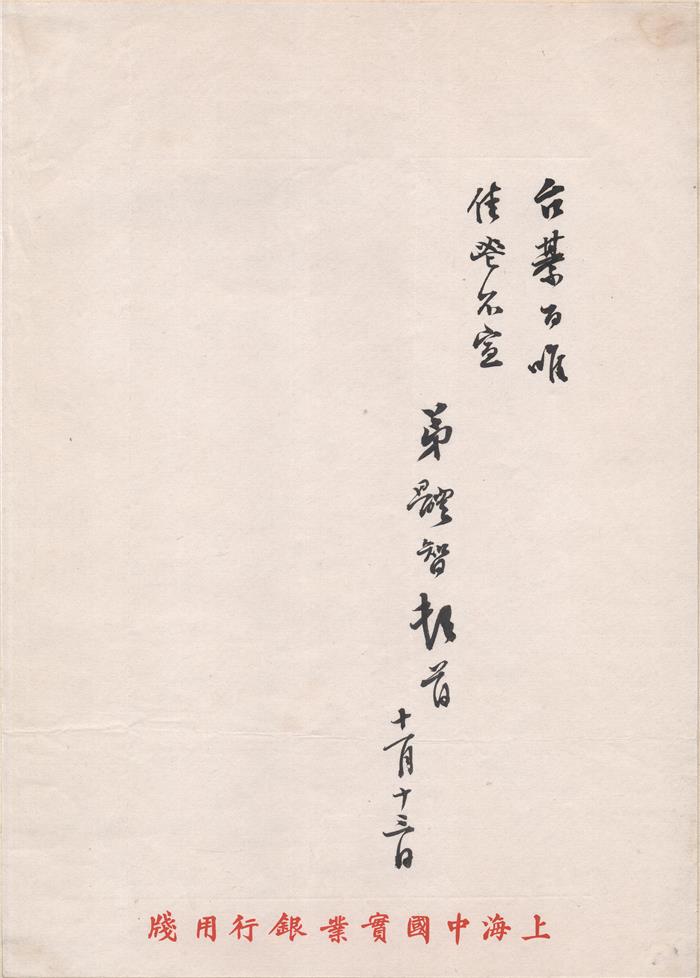 台綦百唯
佳鑒不宣
弟體智頓首
十一月十三日
上海中國實業銀行用牋